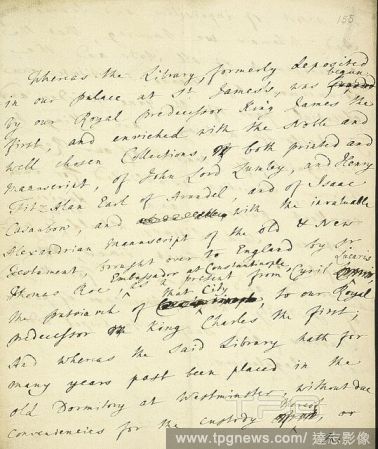 155
Whereas the Library, formerly deposited
in our palace at St James's, was begun
by our Royal predecessor King James the
First, and enriched with the Noble and
well chosen Collections, both printed and
manuscript, of John Lord Lumley, and Henry
Fitz-Alan Earl of Arundel, and of Isaac
Casaubon, and with the invaluable
Alexandrian Manuscript of the old & New
Testament, brought over to England by Sr.
Thomas Roe, Embassador at Constantinople, as a present from Cyril Lucaris
the patriarch of that City, to our Royal
predecessor King Charles the first;
And whereas the said Library hath for
many years past been placed in the
old Dormitory at Westminster without due
conveniencies for the custody thereof, or
www.tpgnews.com / 達志影像